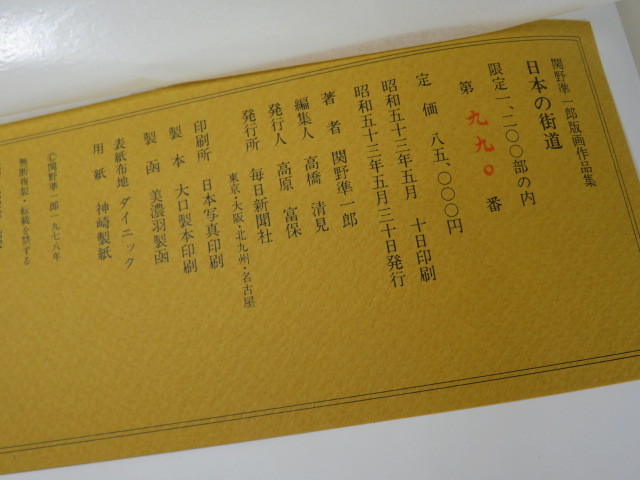 関野準一郎版画作品集
日本の街道
限定一、二〇〇部の内
第 九九〇 番
定 価 八五、〇〇〇円
昭和五十三年五月 十日印刷
昭和五十三年五月三十日発行
著 者 関野準一郎
編集人 高橋 清見
発行人 高原 富保
発行所 毎日新聞社
東京・大阪・北九州・名古屋
印刷所 日本写真印刷
製 本 大口製本印刷
製 函 美濃羽製函
表紙布地 ダイニック
用 紙 神崎製紙
©関野準一郎一九七八年
無断複製・転載を禁ずる